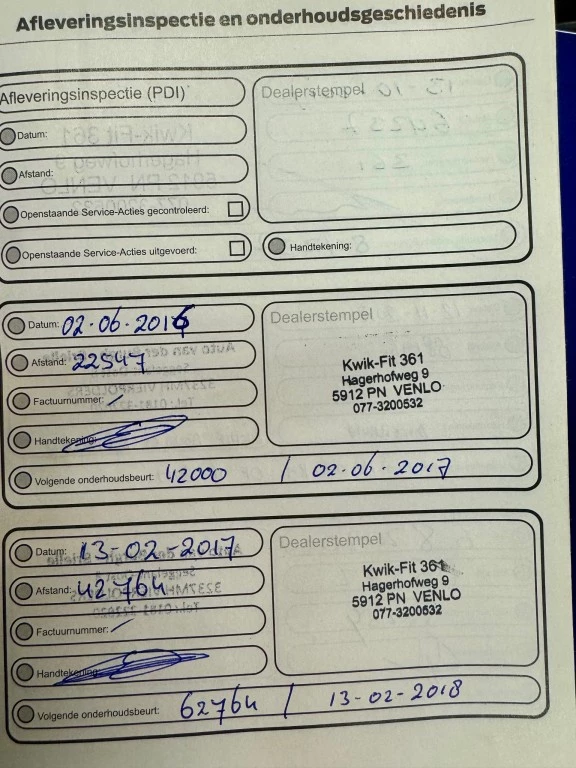 Afleveringsinspectie en onderhoudsgeschiedenis
Afleveringsinspectie (PDI)
Dealerstempel
Datum:
Afstand:
Openstaande Service-Acties gecontroleerd:
Openstaande Service-Acties uitgevoerd:
Handtekening:
Datum: 02-06-2016
Dealerstempel
Afstand: 22547
Kwik-Fit 361
Hagerhofweg 9
5912 PN VENLO
077-3200532
Factuurnummer:
Handtekening:
Volgende onderhoudsbeurt: 42000 / 02-06-2017
Datum: 13-02-2017
Dealerstempel
Afstand: 42764
Kwik-Fit 361
Hagerhofweg 9
5912 PN VENLO
077-3200532
Factuurnummer:
Handtekening:
Volgende onderhoudsbeurt: 62764 / 13-02-2018